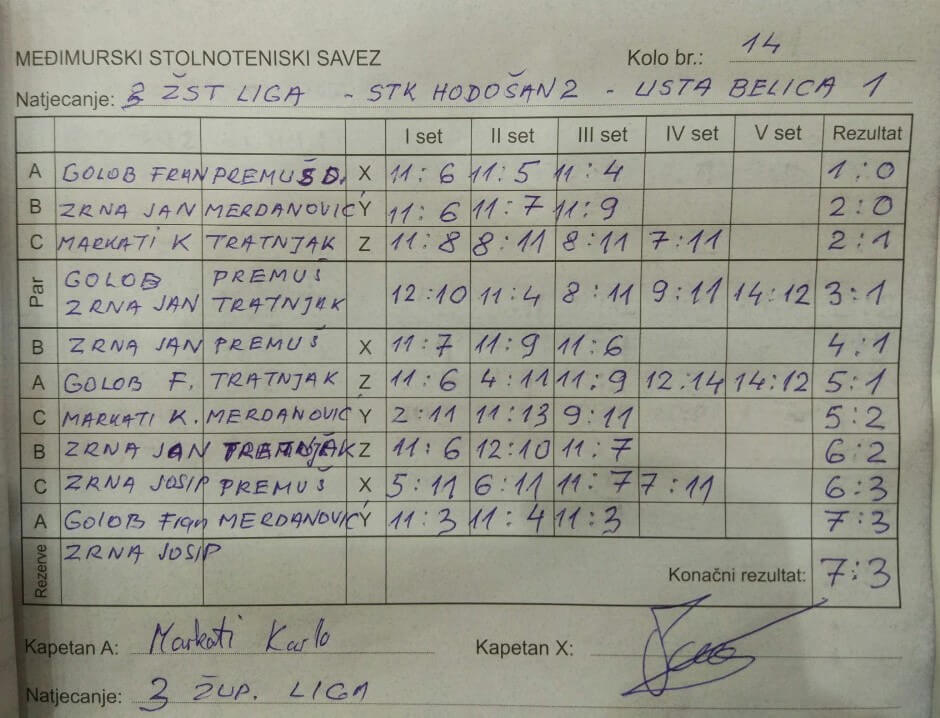 MEĐIMURSKI STOLNOTENISKI SAVEZ Kolo br.: 14
Natjecanje: 3 ŽST LIGA - STK HODOŠAN 2 - USTA BELICA 1
I set II set III set IV set V set Rezultat
A GOLOB FRAN PREMUŠ D. X 11:6 11:5 11:4 1:0
B ZRNA JAN MERDANOVIĆ Y 11:6 11:7 11:9 2:0
C MARKATI K TRATNJAK Z 11:8 8:11 8:11 7:11 2:1
Par GOLOB PREMUŠ
ZRNA JAN TRATNJAK 12:10 11:4 8:11 9:11 14:12 3:1
B ZRNA JAN PREMUŠ X 11:7 11:9 11:6 4:1
A GOLOB F. TRATNJAK Z 11:6 4:11 11:9 12:14 14:12 5:1
C MARKATI K. MERDANOVIĆ Y 2:11 11:13 9:11 5:2
B ZRNA JAN TRATNJAK Z 11:6 12:10 11:7 6:2
C ZRNA JOSIP PREMUŠ X 5:11 6:11 11:7 7:11 6:3
A GOLOB Fran MERDANOVIĆ Y 11:3 11:4 11:3 7:3
Rezerve ZRNA JOSIP
Konačni rezultat: 7:3
Kapetan A: Markati Karlo Kapetan X:
Natjecanje: 3 ŽUP. LIGA